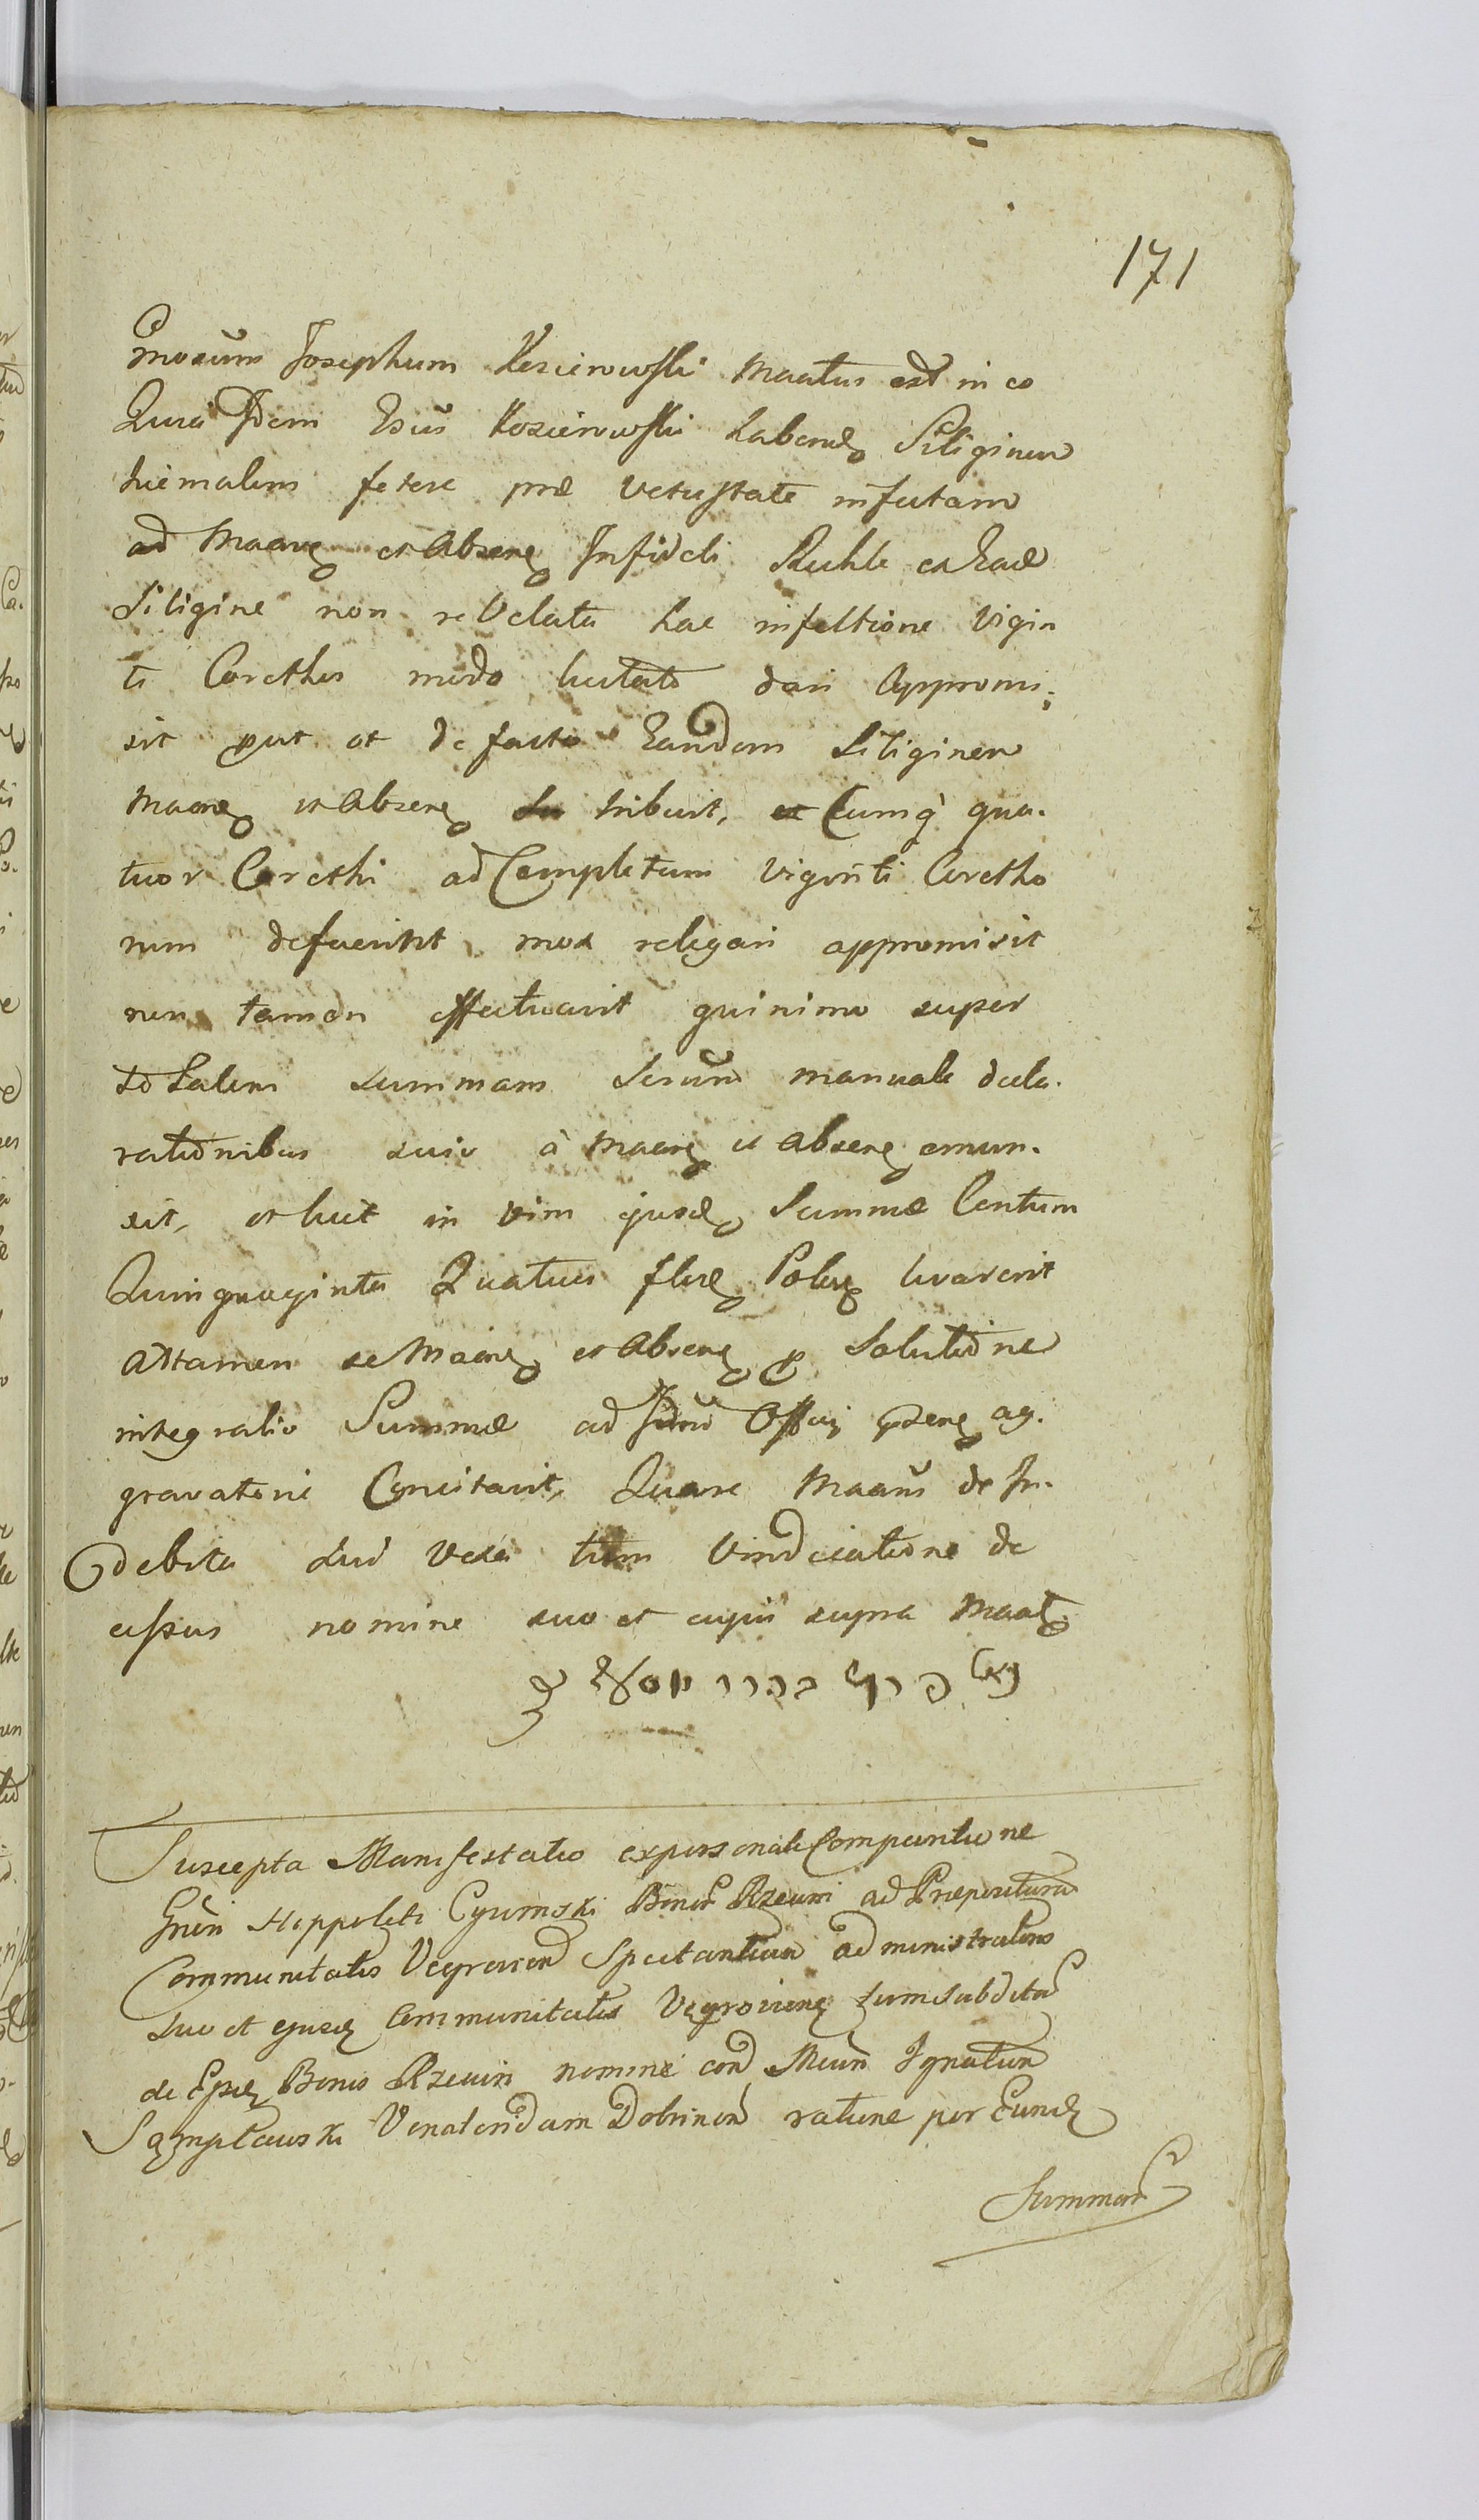 171
mosum Josephum Kozierowski Maatus est in eo
Quia Idem Gsus Kozierowski habens Siliginem
hiemalem fetere præ vetustate infectam
ad Maare et Absene Infideli Ruchle ex Ead
Siligine non revelata hac infectione vigin
ti Corethos modo lucitato dari appromi;
sit put et de facto Eandem Siliginem
Maare et Absene tribuit, Cumq qua.
tuor Corethi ad Completum viginti Coretho
rum defuerint mox relegari appromisit
non tamen effectuavit quinimo super
totalem summam Scrum manuale decla.
rationibus suis à Maare et Absene emun.
xit, et licet in vim ejusd Summæ Centum
Quinquaginta Quatuor flor Polon levaverit
attamen se Maare et Absene p Solutione
integralis Summæ ad Officij psens ag.
gravatorie Concitavit, Quare Maans de In.
debita sui vexa tum vindicatione de
cessus nomine suo et cujus supra Maat
Suscepta Manifestatio ex personali Comparitione
Gnsi Hippoliti Cyrumski Bonor Rzewin ad Præposituram
Communitatis Vegrovien Spectantium administratoris
suo et ejusd Communitatis Vegroviens tum Subditor
de Eysd Bonis Rzewin nomine con Mcum Ignatium
Sąmpławski Venatoridam Dobrinen ratione per Eund
Summar